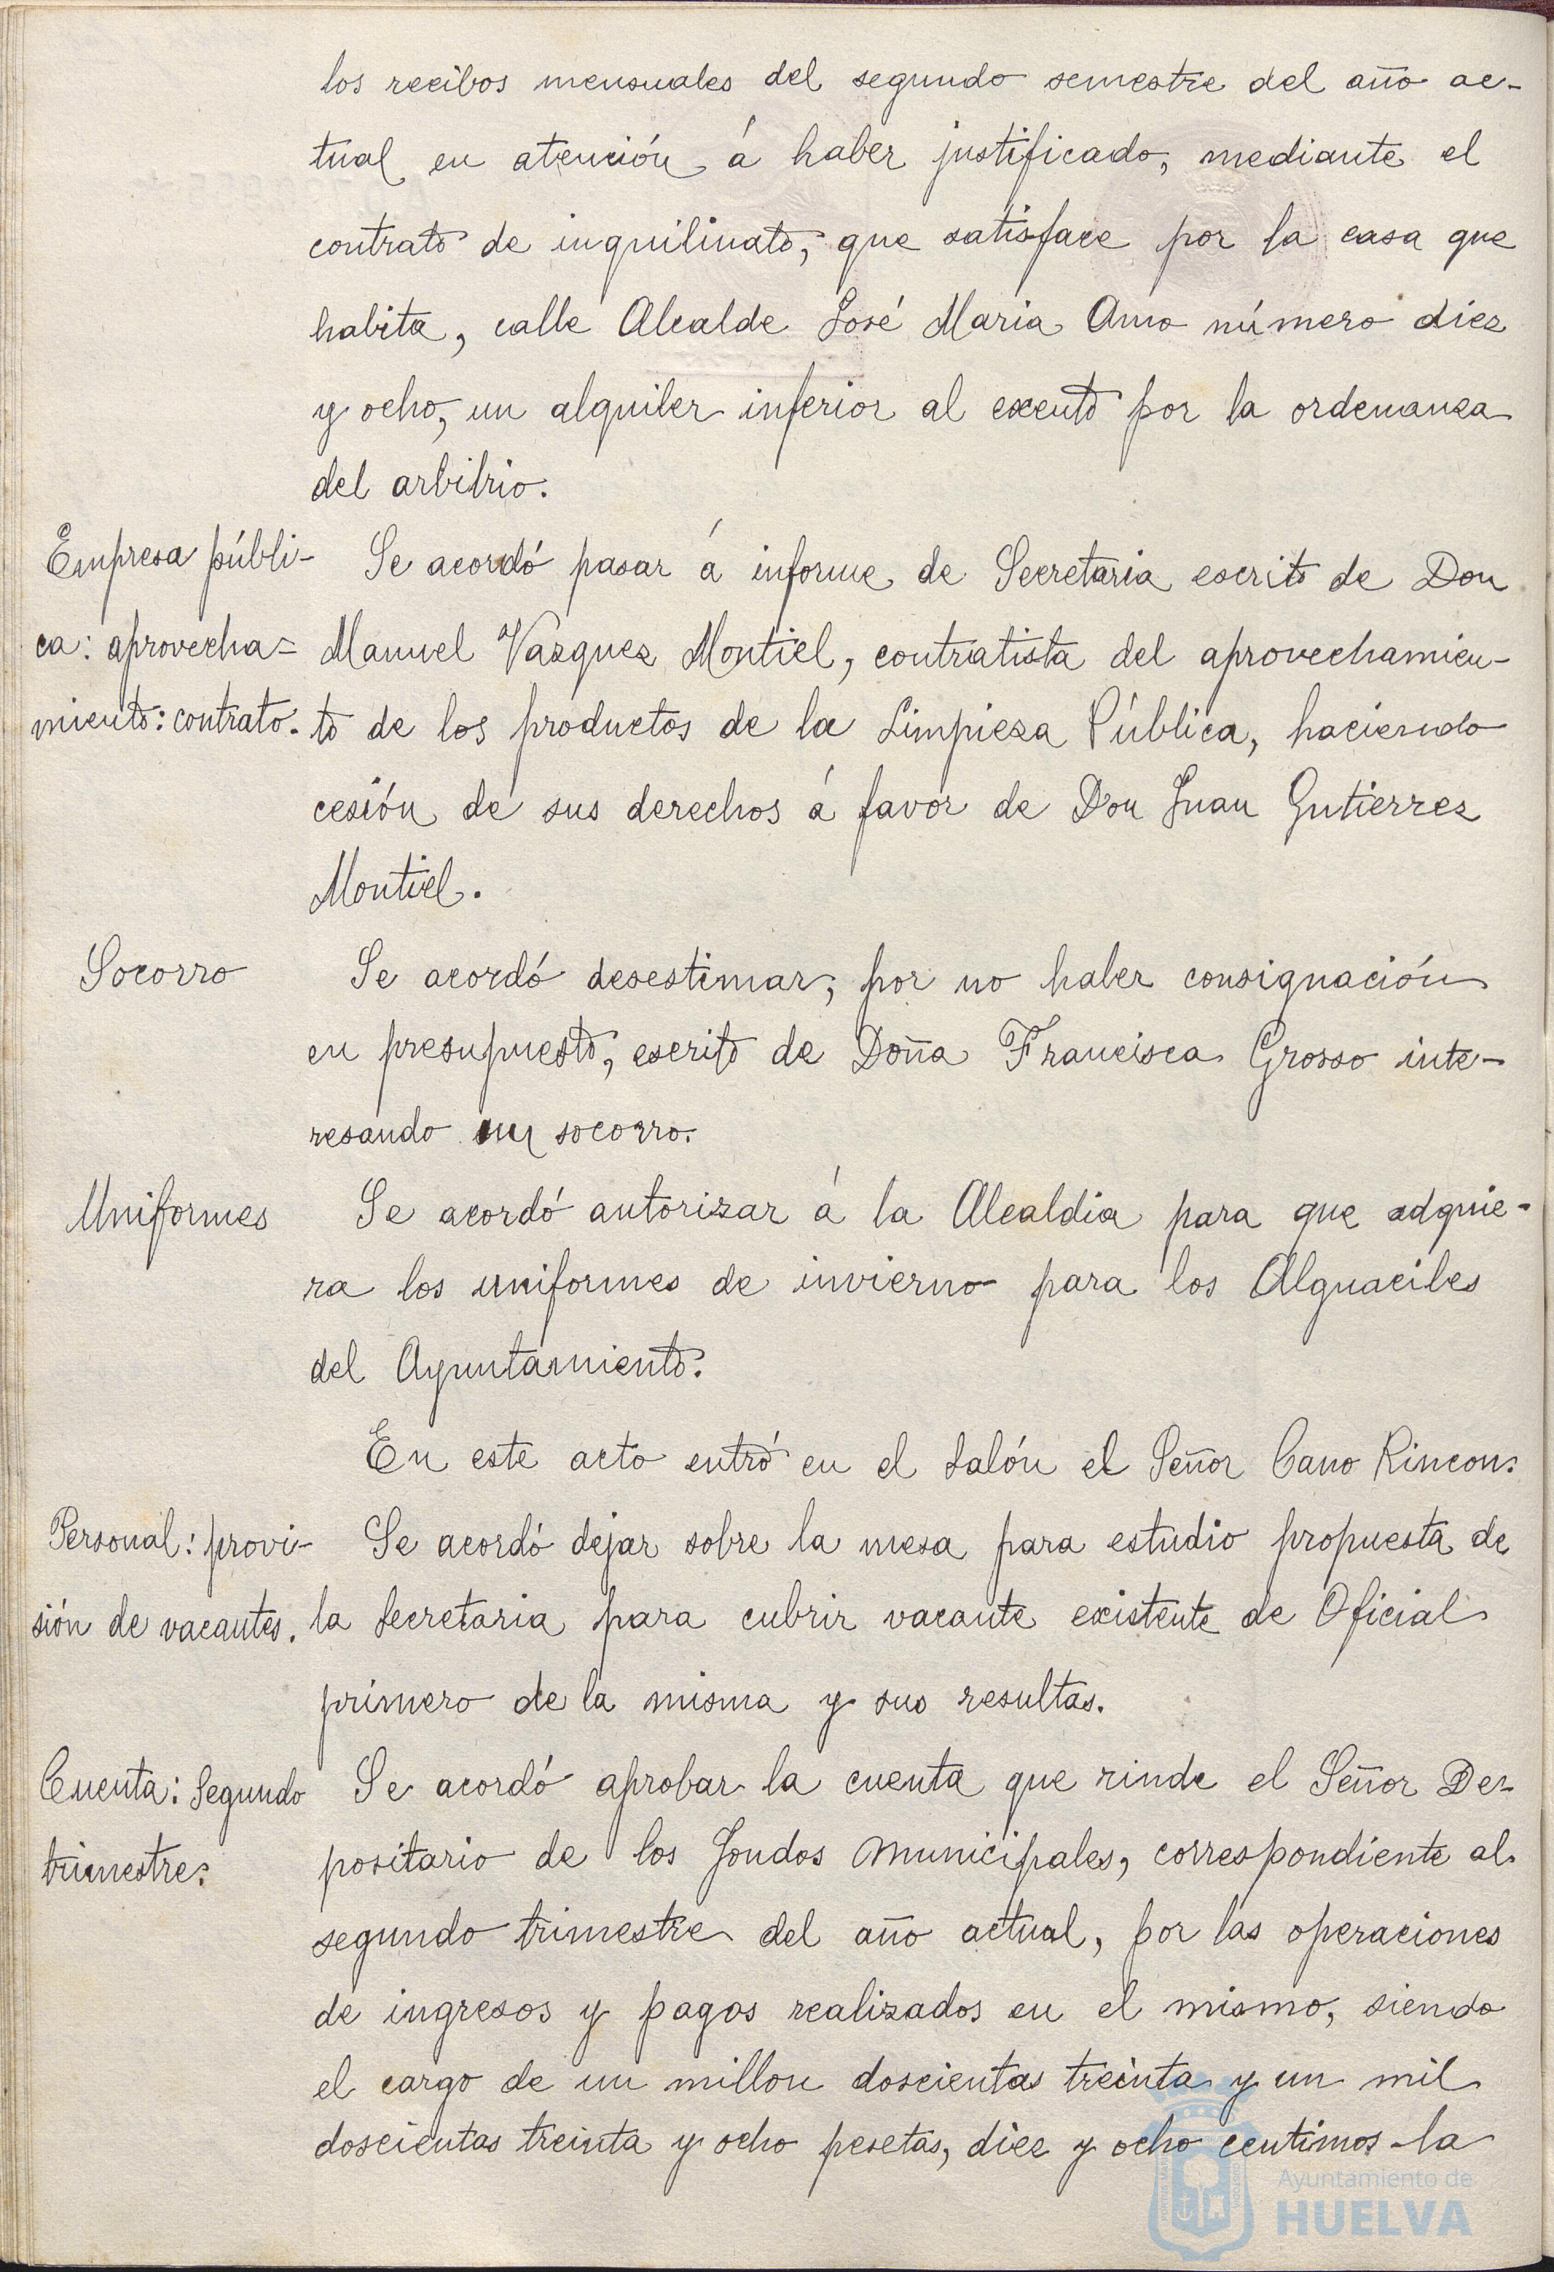 los recibos mensuales del segundo semestre del año ac-
tual en atención á haber justificado, mediante el
contrato de inquilinato, que satisface por la casa que
habita, calle Alcalde José Maria Amo número diez
y ocho, un alquiler inferior al exento por la ordenanza
del arbitrio.
Empresa públi-
ca: aprovecha=
miento: contrato.
Se acordó pasar á informe de Secretaria escrito de Don
Manuel Vazquez Montiel, contratista del aprovechamien-
to de los productos de la Limpieza Pública, haciendo
cesión de sus derechos á favor de Don Juan Gutierrez
Montiel.
Socorro
Se acordó desestimar, por no haber consignación
en presupuesto, escrito de Doña Francisca Grosso inte-
resando un socorro.
Uniformes
Se acordó autorizar á la Alcaldia para que adquie-
ra los uniformes de invierno para los Alguaciles
del Ayuntamiento.
En este acto entró en el salón el Señor Cano Rincon.
Personal: provi-
sión de vacantes.
Se acordó dejar sobre la mesa para estudio propuesta de
la Secretaria para cubrir vacante existente de Oficial
primero de la misma y sus resultas.
Cuenta: Segundo
trimestre.
Se acordó aprobar la cuenta que rinde el Señor De-
positario de los fondos municipales, correspondiente al
segundo trimestre del año actual, por las operaciones
de ingresos y pagos realizados en el mismo, siendo
el cargo de un millon doscientas treinta y un mil
doscientas treinta y ocho pesetas, diez y ocho centimos la
Ayuntamiento de
HUELVA